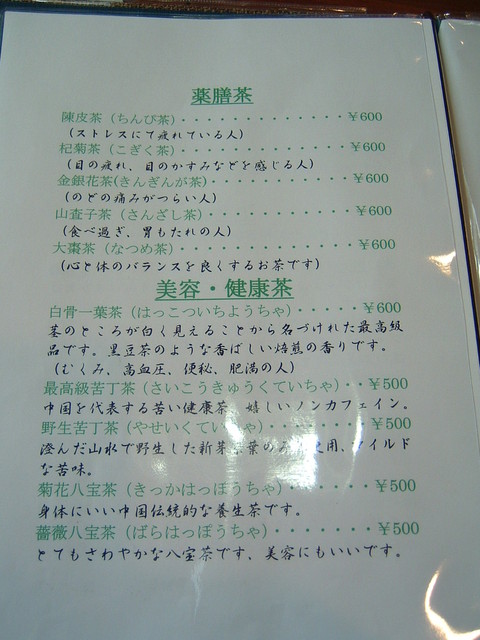 薬膳茶
陳皮茶（ちんぴ茶）・・・・・・・・・・・・・・￥600
（ストレスにて疲れている人）
杞菊茶（こぎく茶）・・・・・・・・・・・・・・￥600
（目の疲れ、目のかすみなどを感じる人）
金銀花茶(きんぎんが茶)・・・・・・・・・・・・￥600
（のどの痛みがつらい人）
山査子茶（さんざし茶）・・・・・・・・・・・・￥600
（食べ過ぎ、胃もたれの人）
大棗茶（なつめ茶）・・・・・・・・・・・・・・￥600
（心と体のバランスを良くするお茶です）
美容・健康茶
白骨一葉茶（はっこついちようちゃ）・・・・・￥600
茎のところが白く見えることから名づけれた最高級
品です。黒豆茶のような香ばしい焙煎の香りです。
（むくみ、高血圧、便秘、肥満の人）
最高級苦丁茶（さいこうきゅうくていちゃ）・・￥500
中国を代表する苦い健康茶、嬉しいノンカフェイン。
野生苦丁茶（やせいくていちゃ）・・・・・・・￥500
澄んだ山水で野生した新芽 葉の 用、 イルド
な苦味。
菊花八宝茶（きっかはっぽうちゃ）・・・・・・・￥500
身体にいい中国伝統的な養生茶です。
薔薇八宝茶（ばらはっぽうちゃ）・・・・・・・・￥500
とてもさわやかな八宝茶です、美容にもいいです。